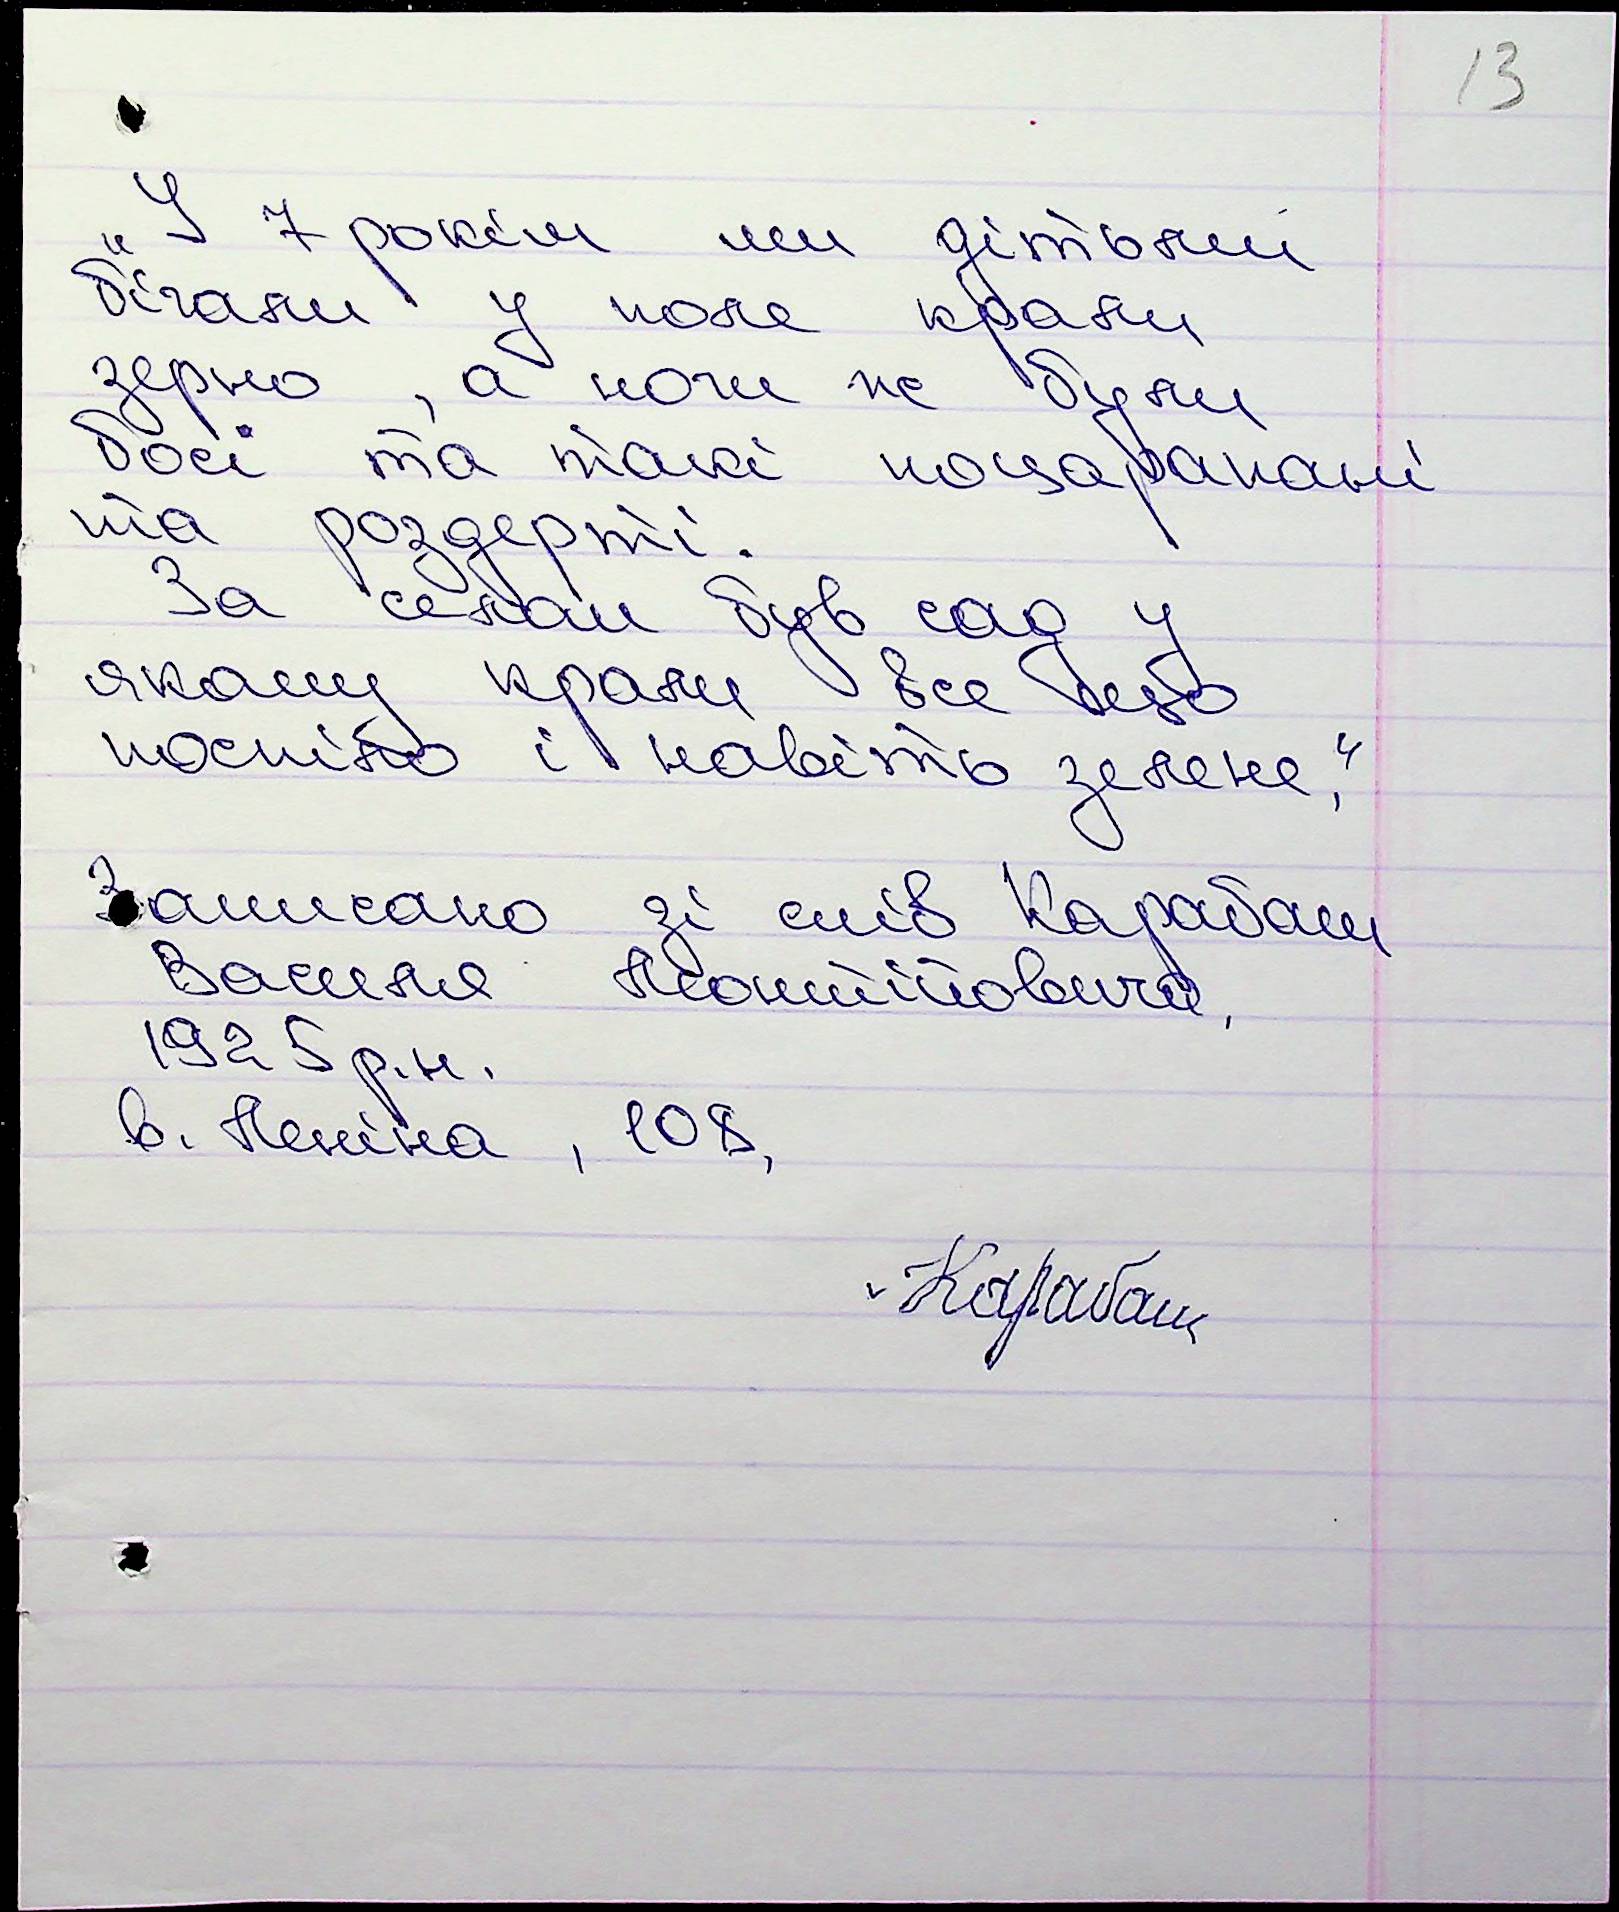 13
„У 7 років ми дітьми
бігали у поле крали
зерно, а ноги же були
босі та такі поцарапані
та роздерті.
За селом був сад у
якому крали все було
поспіло і навіть зелене,“
Записано зі слів Карабаш
Василя Леонтійовича,
1925 р.н.
в. Леніна, 108,
Карабаш